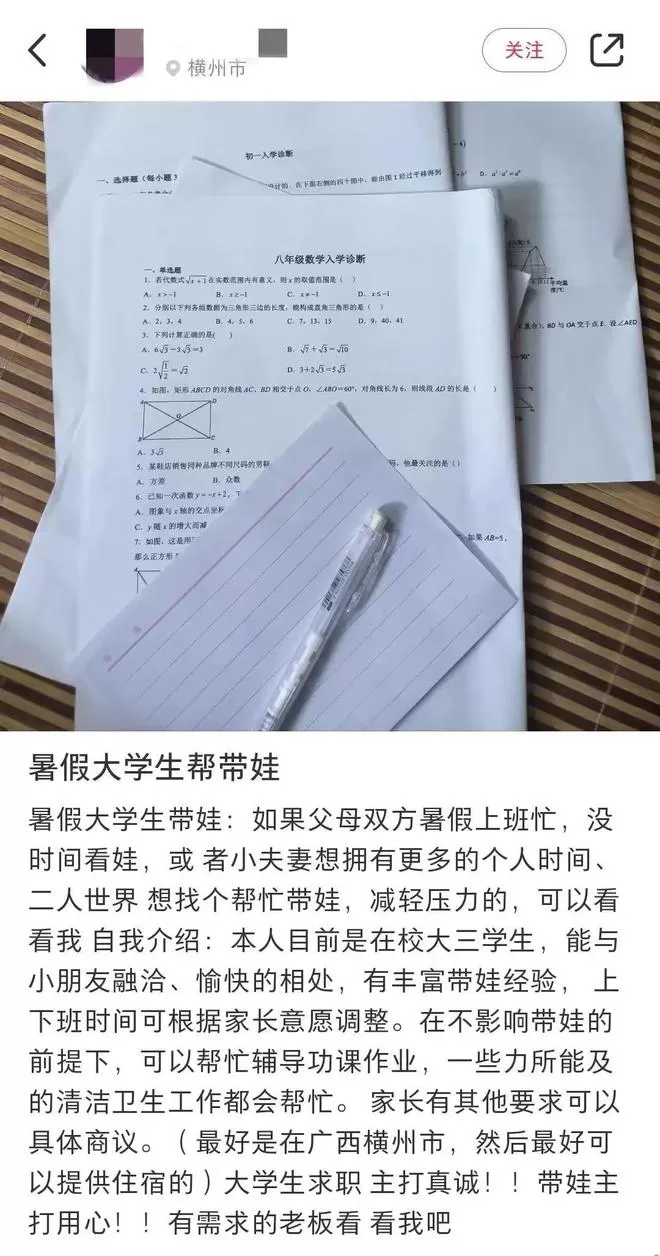 横州市
关注
初一入学诊断
一、选择题（每小题3
设计的。在下面右侧的四个图中，能由图1经过平移得到
D. a²·a³=a⁶
八年级数学入学诊断
一、单选题
1. 若代数式√x+1在实数范围内有意义，则x的取值范围是（ ）
A. x>-1 B. x≥-1 C. x≠-1 D. x≤-1
2. 分别以下列各组数据为三角形三边的长度，能构成直角三角形的是（ ）
A. 2，3，4 B. 4，5，6 C. 7，13，15 D. 9，40，41
3. 下列计算正确的是（ ）
A. 6√3-3√3=3 B. √7+√3=√10
C. 2√1/2=√2 D. 3+2√3=5√3
4. 如图，矩形ABCD的对角线AC、BD相交于点O，∠ABO=60°，对角线长为6，则线段AD的长是（ ）
A D
O
B C
A. 3√3 B. 4
5. 某鞋店销售同种品牌不同尺码的男鞋
码，他最关注的是（）
A. 方差 B. 众数
6. 已知一次函数y=-x+2，下
A. 图象与x轴的交点坐标
C. y随x的增大而减
7. 如图，这是用
如果AB=5，
那么正方形
重合），BD与OA交于点E．设∠AED
=90°
平均温
度/℃
暑假大学生帮带娃
暑假大学生带娃：如果父母双方暑假上班忙，没
时间看娃，或 者小夫妻想拥有更多的个人时间、
二人世界 想找个帮忙带娃，减轻压力的，可以看
看我 自我介绍：本人目前是在校大三学生，能与
小朋友融洽、愉快的相处，有丰富带娃经验， 上
下班时间可根据家长意愿调整。在不影响带娃的
前提下，可以帮忙辅导功课作业，一些力所能及
的清洁卫生工作都会帮忙。 家长有其他要求可以
具体商议。（最好是在广西横州市，然后最好可
以提供住宿的）大学生求职 主打真诚！！带娃主
打用心！！有需求的老板看 看我吧